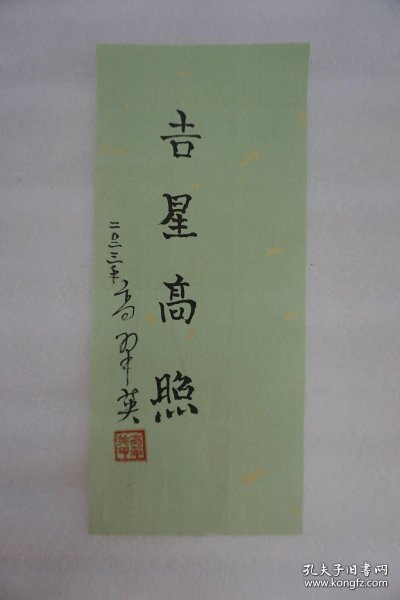 吉星高照
二〇二三年高翠英
孔夫子旧书网
www.kongfz.com